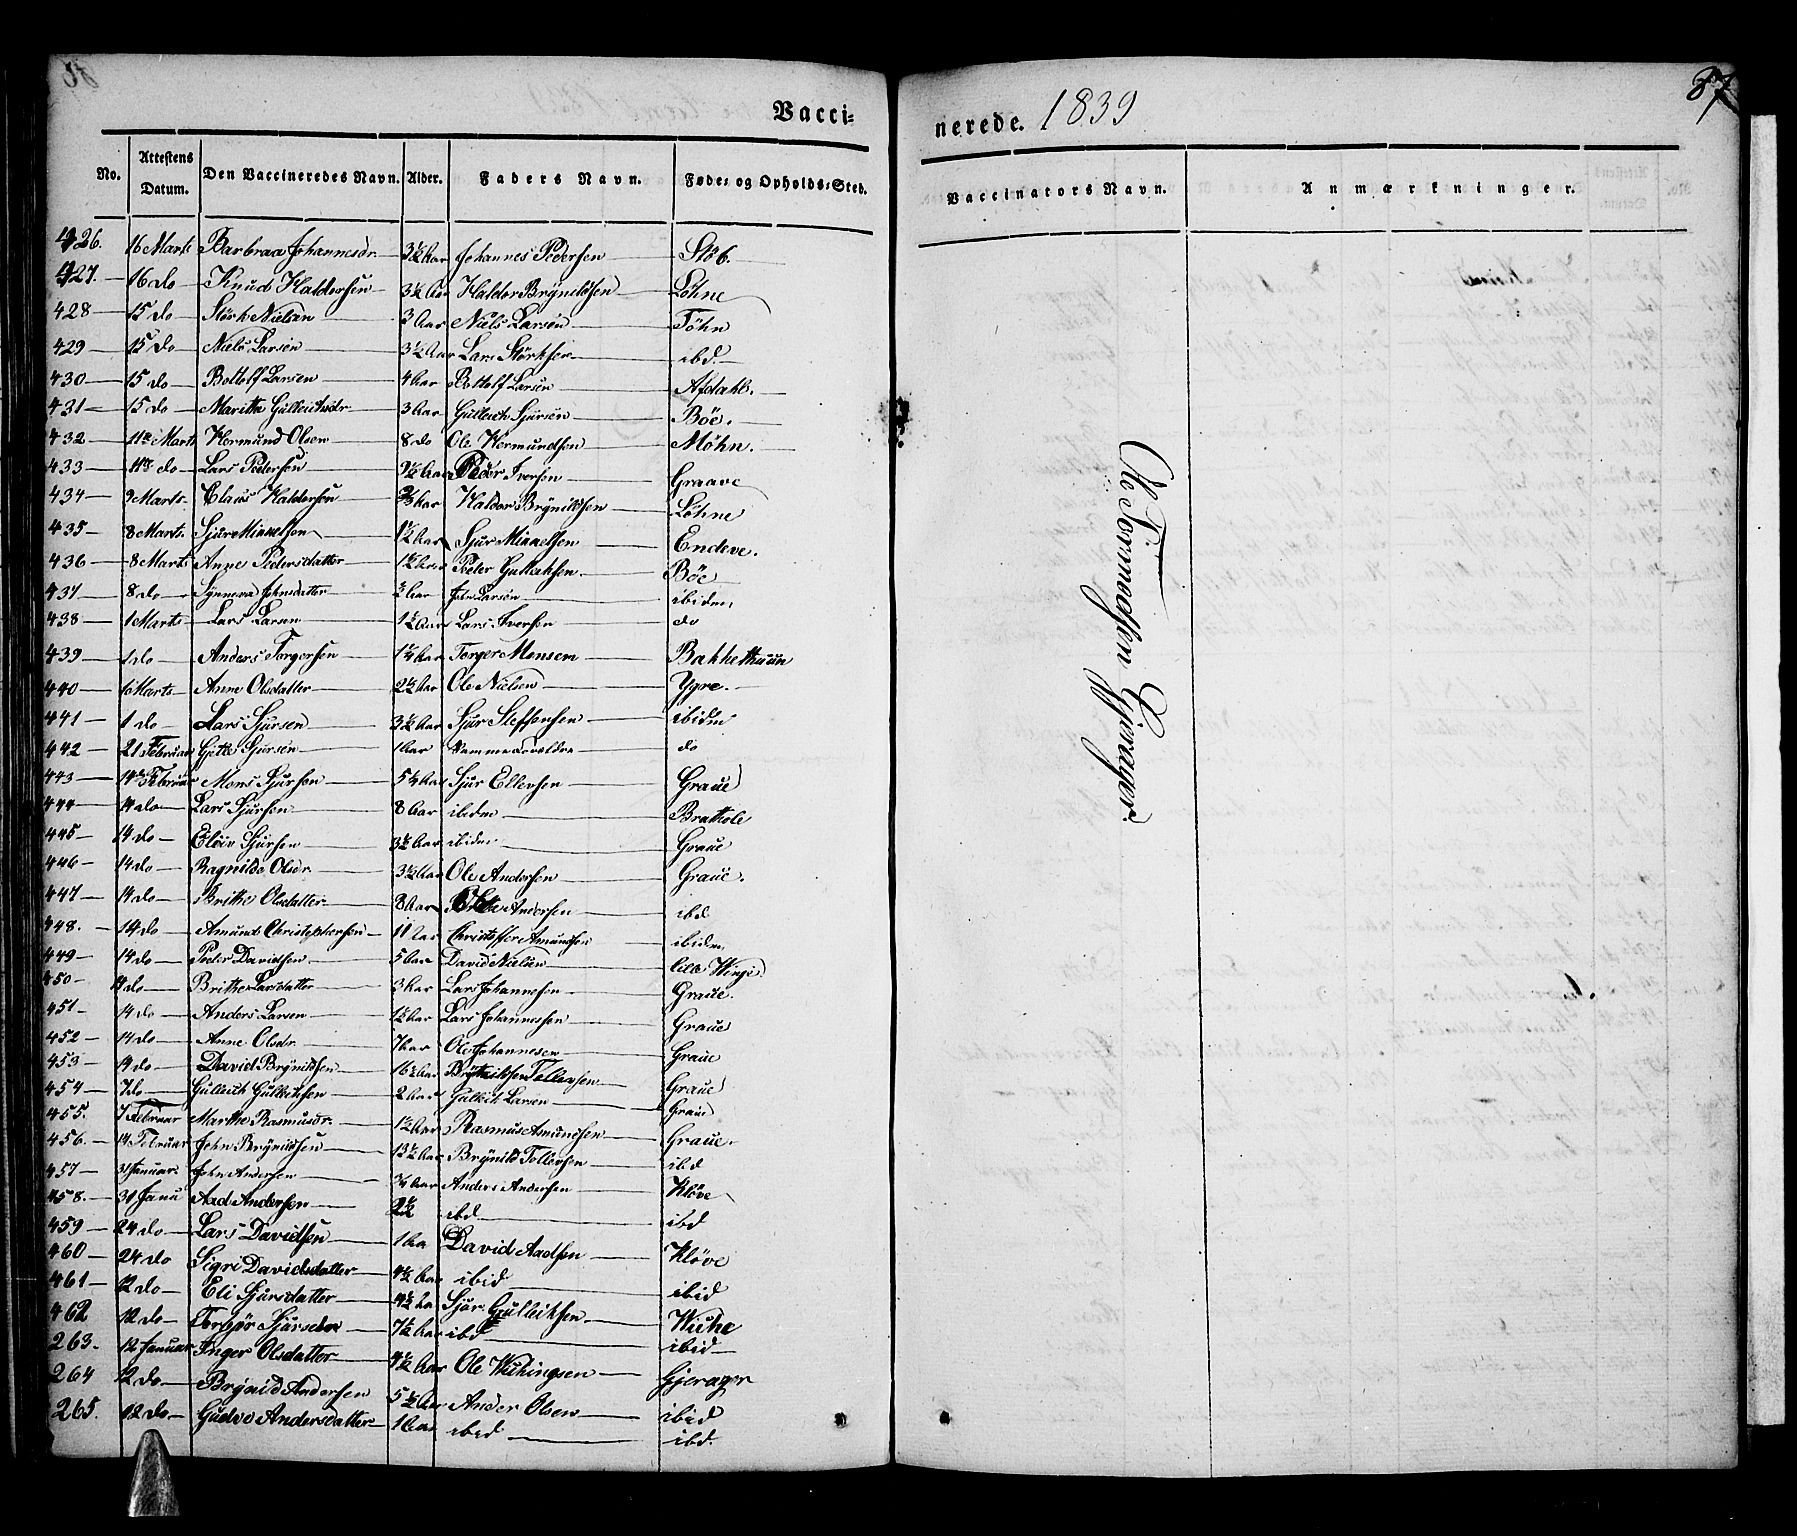 Vacci-
nerede. 1839
87
No.
Attestens Datum.
Den Vaccineredes Navn.
Alder.
Faders Navn.
Føde- og Opholds-Sted.
Vaccinators Navn.
Anmærkninger.
426. 16 Marts Barbraa Johannesdr. 3½ Aar Johannes Pedersen
427. 16 do Knud Haldorsen 3½ Aar Haldor Brynildsen Løhne
428 15 do Størk Nielsen 3 Aar Niels Larsen Tøhn
429 15 do Niels Larsen 3½ Aar Lars Størksen ibd.
430 15 do Bottolf Larsen 4 Aar Bottolf Larsen Afdahl.
431 15 do Maritha Gulleiksdr. 3 Aar Gulleich Sjursen Böe.
432 Marts Hermund Olsen 8 do Ole Hermundsen Møhn.
433 do Lars Pedersen Aar Peder Iversen Graave
434 9 Marts. Claus Haldorsen Aar Haldor Brynildsen Løhne
435 8 Marts. Sjur Mikkelsen 1½ Aar Sjur Mikkelsen Endeve.
436 8 Marts Anne Pedersdatter Peder Gulleiksen Böe
437 8 do Synneva Johnsdatter Aar John Larsen ibidem
438 1 Marts Lars Larsen 1½ Aar Lars Iversen do
439 1 do Anders Torgersen 1¼ Aar Torger Monsen Bakkethuun
440 1 Marts Anne Olsdatter 2½ Aar Ole Nielsen Ygre.
441 1 do Lars Sjursen 3½ Aar Sjur Steffensen ibidm
442 21 Februar Sjursen 1 Aar Samme Forældre do
443 14 Februar Mons Sjursen 5¼ Aar Sjur Ellevsen Graue
444 14 do Lars Sjursen 8 Aar ibidem Brathole
445 14 do Eløiv Sjursen 3½ Aar ibidem Graue
446 14 do Ragnilde Olsdr. 3½ Aar Ole Andersen Graue.
447 14 do Brithe Olsdatter 8 Aar Ole Andersen ibd
448. 14 do Amund Christophersen 11 Aar Christoffer Amundsen ibidem
449 14 do Peder Davidsen 5 Aar David Nielsen Lille Winje.
450 14 do Brithe Larsdatter 3 Aar Lars Johannesen Graue.
451 14 do Anders Larsen 1½ Aar Lars Johannessen Graue
452 14 do Anne Olsdr. 7 Aar Ole Johannesen Graue
453 14 do David Brynildsen 16½ Aar Tollevsen Graue
454 7 do Gulleich Gulleiksen 2 Aar Gulleik Larsen Graue
455. 7 Februar Marthe Rasmusdr. 1½ Aar Rasmus Amundsen Graue.
456. 14 Februar John Brynildsen 13½ Aar Brynild Tollevsen ibd
457 31 Januar. John Andersen ¾ Aar Anders Andersen Kløve
458. 31 Janu Aad Andersen 2½ ibd ibd
459 24 do Lars Davidsen 1 Aa David Aadsen Kløve
460 24 do Sigri Davidsdatter 4½ Aar ibid ibid
461 12 do Eli Sjursdatter 4½ Aa Sjur Gulleiksen Wiche
462 12 do Sjursdtr 7½ Aar ibd ibid
263. 12 Januar Inger Olsdatter 4½ Aar Ole Wikingsen Gjerager
264 12 do Brynild Andersen 5½ Aar Ander Olsen ibid
265. 12 do Gudve Andersdatter 1 Aar ibid ibd.
Ole Tormodsen Gjerager.